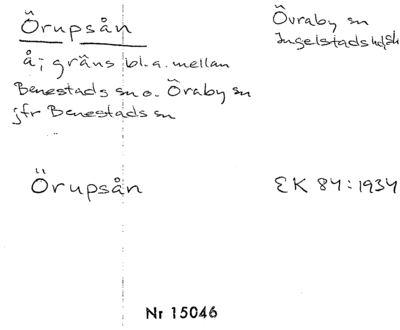 Örupsån
Övraby sn
Ingelstads hd, Sk
å; gräns bl.a. mellan
Benestads sn o. Öraby sn
jfr Benestads sn
Örupsån
EK 84:1934
Nr 15046